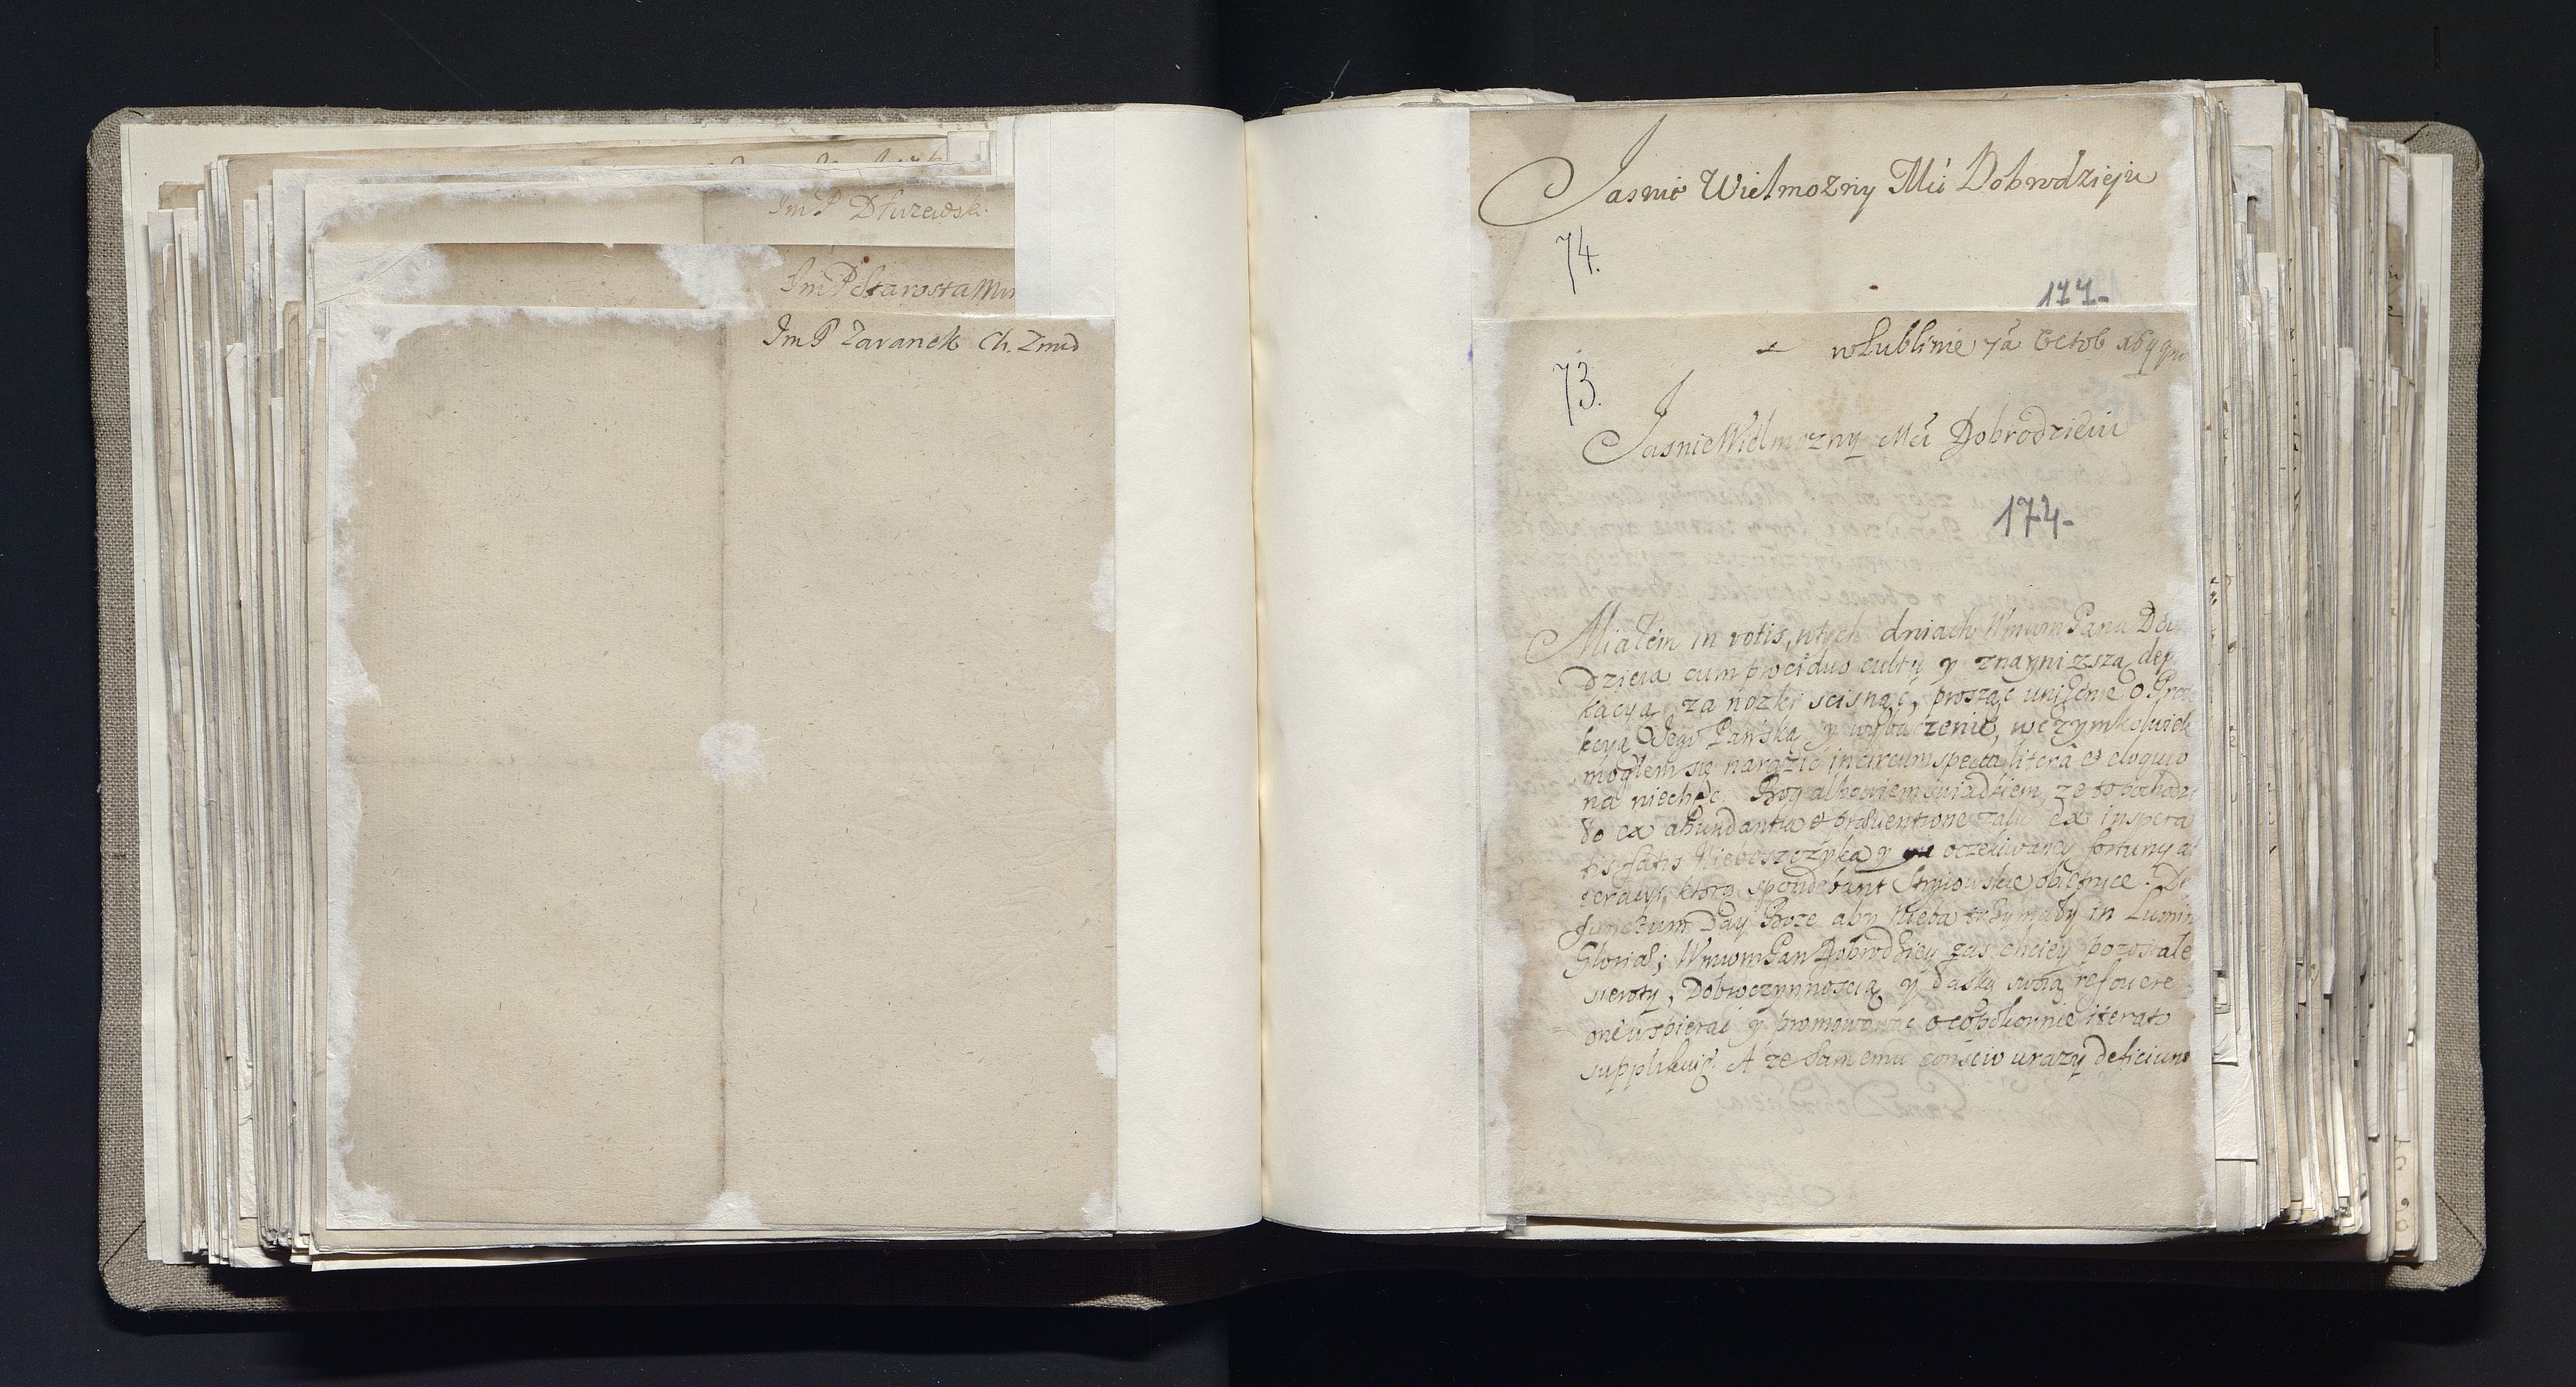 Im P Dłuzewsk.
Im P Starosta Min
Im P Zaranek Ch. Zmud
Jasnie Wielmozny Mci Dobrodzieju
74.
177-
w Lublinie 7a Octob
73.
Jasnie Wielmozny Mci Dobrodzieiu
174-
Miałem in votis, w tych dniach Wmwm Pana Do
dzieia cum prociduo cultu y znayniższą dep
kacyą za nożki scisnąć, prosząc uniżenie o Pro
kcyą Jego Pańską y wyba zenie, w czymkolwiek
mogłem się narazić incircumspecta litera et eloquio
na niechęć. Bog albowiem swiadkiem, ze to pochodzi
ło ex abundantia et praeventione zalu ex inspera
tis fatis Nieboszczyka y oczekiwaney fortuny a
ktorą spondebant Stryiowskie obietnice. De
functum Day Boze aby Nieba trzymały in Lumin
Gloriae; Wmwm Pan Dobrodziey zas chciey pozostałe
sieroty, Dobroczynnoscią y łaską swoią refouere
one wspierac y promowować o co pokornie iterato
supplikuię. A ze samemu conscio urazy deficiunt